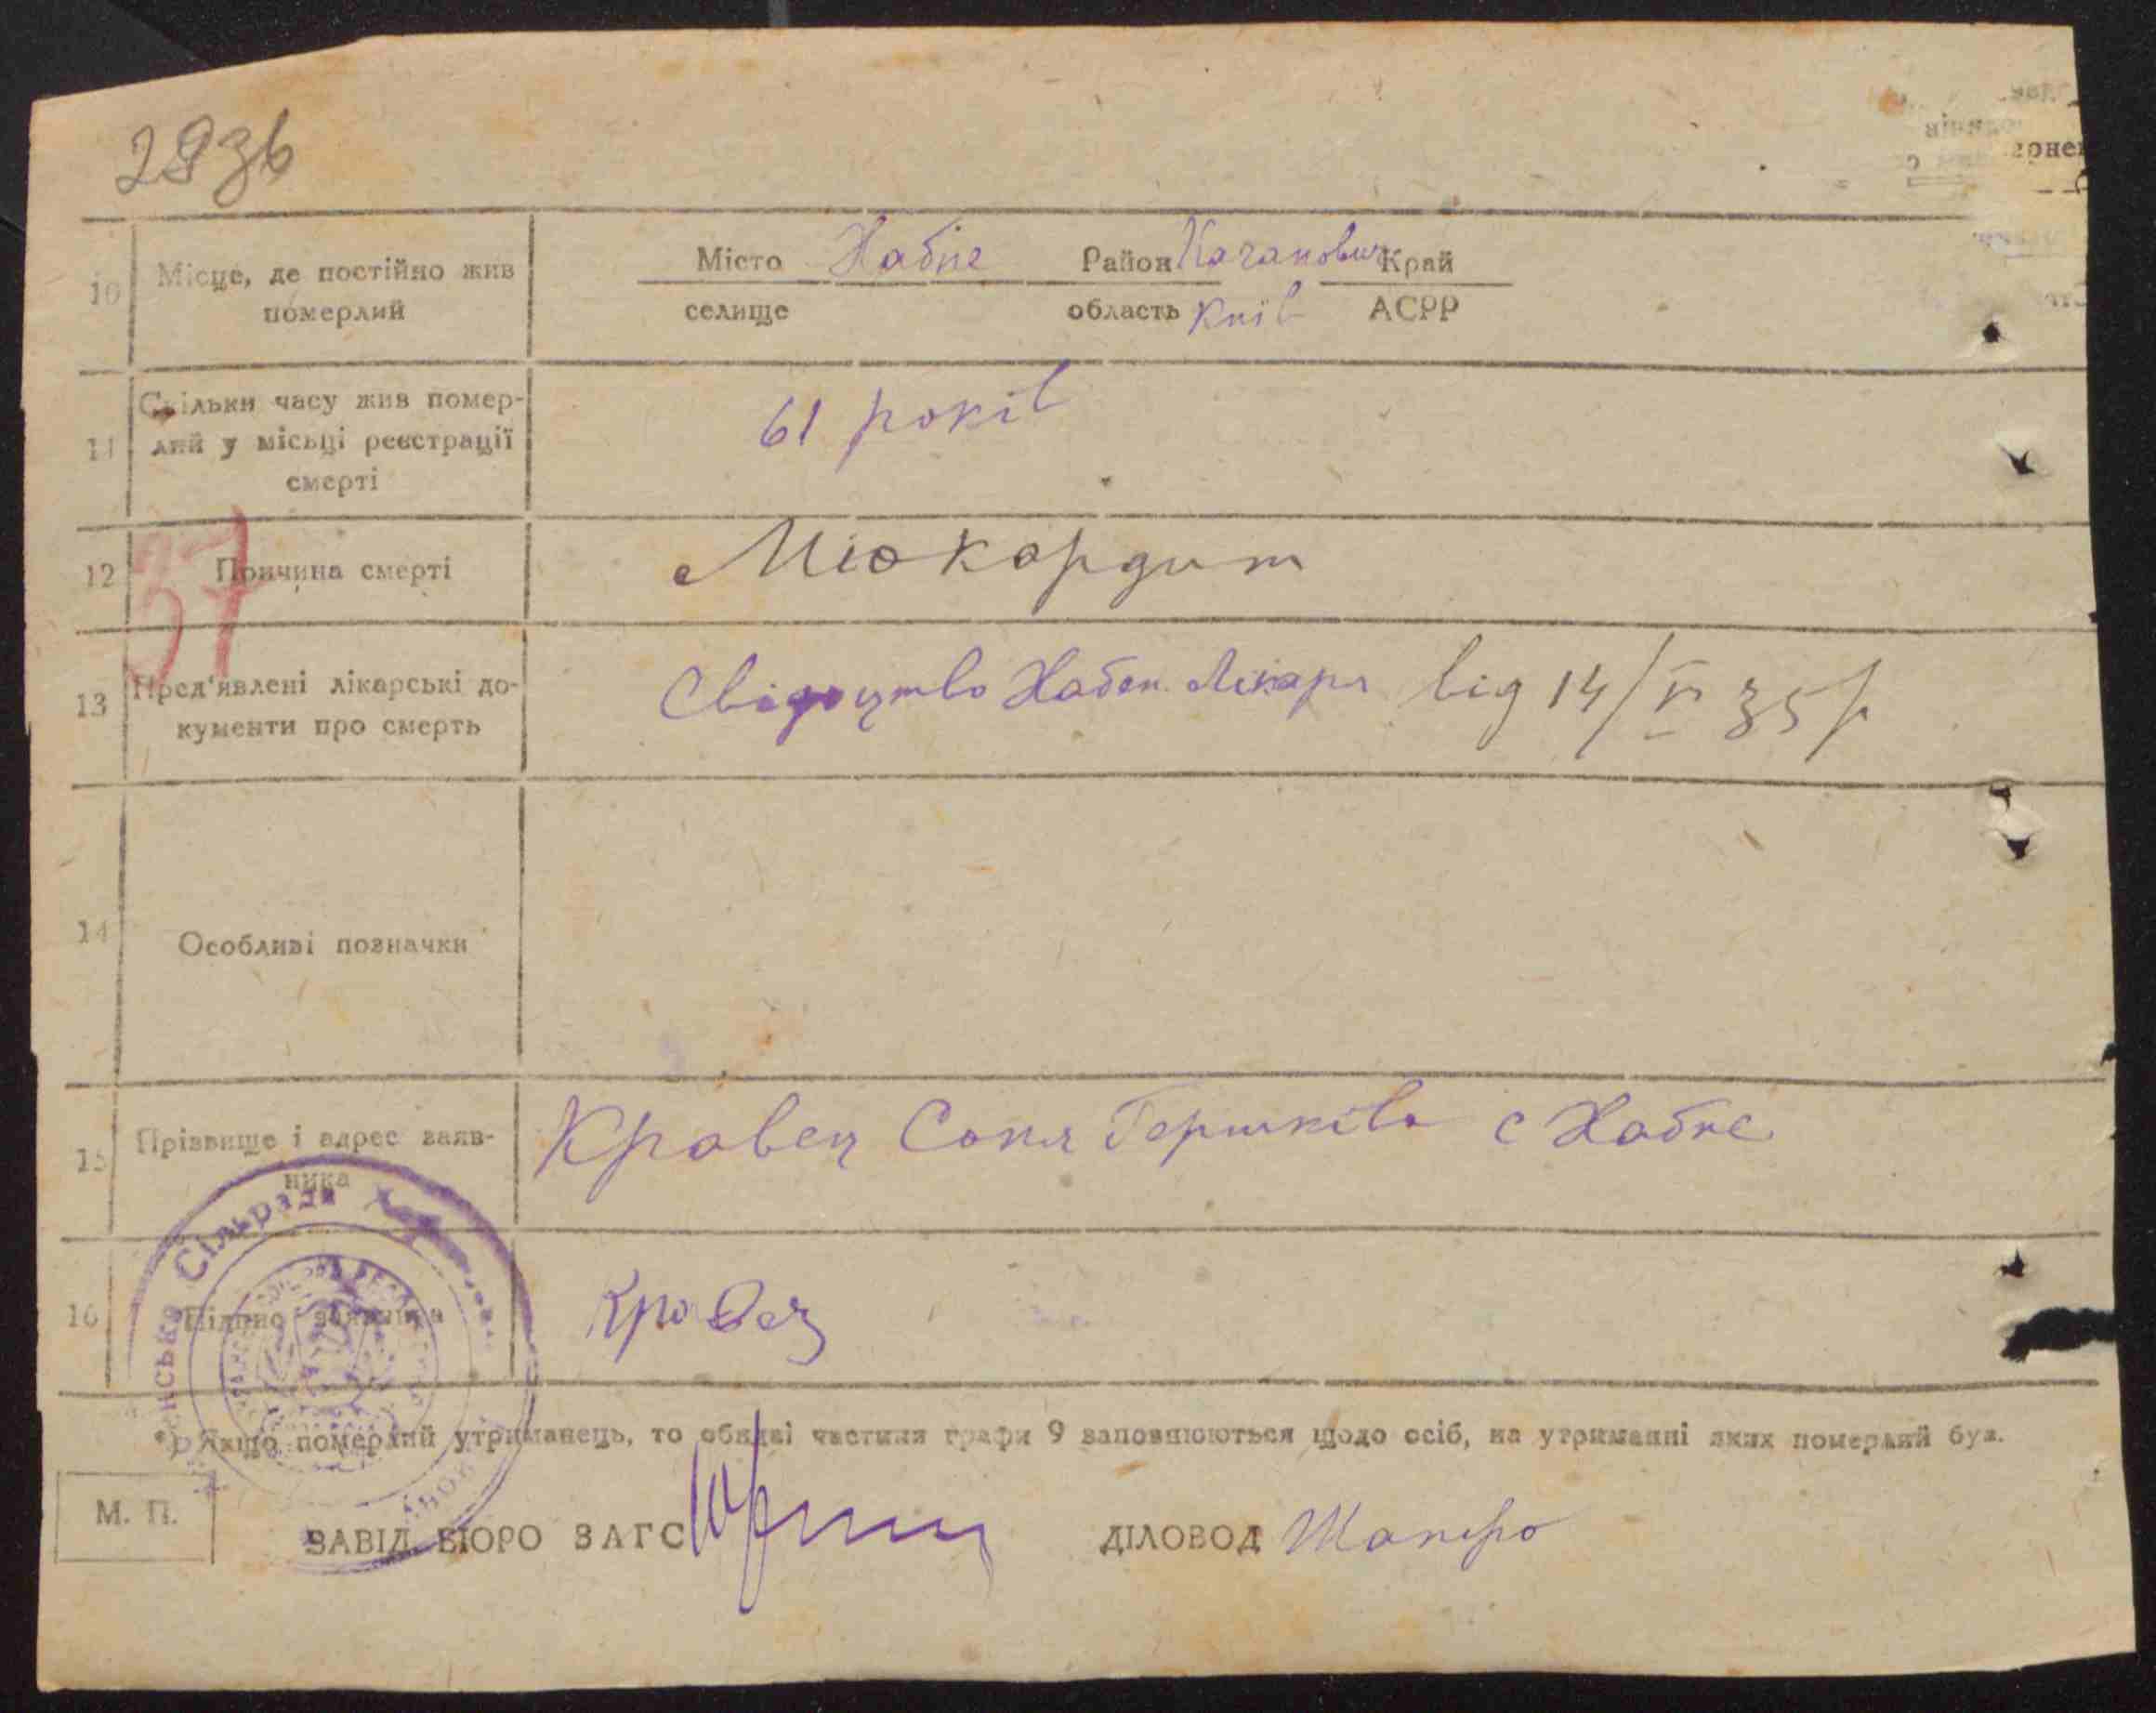 2836
10 Місце, де постійно жив померлий
Місто Хабне Район Качанович Край
селище область Київ АСРР
11 Скільки часу жив помер-
лий у місьці реєстрації
смерті
61 років
12 Причина смерті
Міокардит
37
13 Пред'явлені лікарські до-
кументи про смерть
Свідоцтво Хабен. Лікаря від 14/V 35 р
14 Особливі позначки
15 Прізвище і адрес заяв-
ника
Кравец Соня Гершківа с Хабне
16 Підпис заявника
Кравец
Сільрада
*) Якщо померлий утриманець, то обидві частини графи 9 заповнюються щодо осіб, на утриманні яких померлий був.
М. П.
ЗАВІД. БЮРО ЗАГС
ДІЛОВОД Шапіро